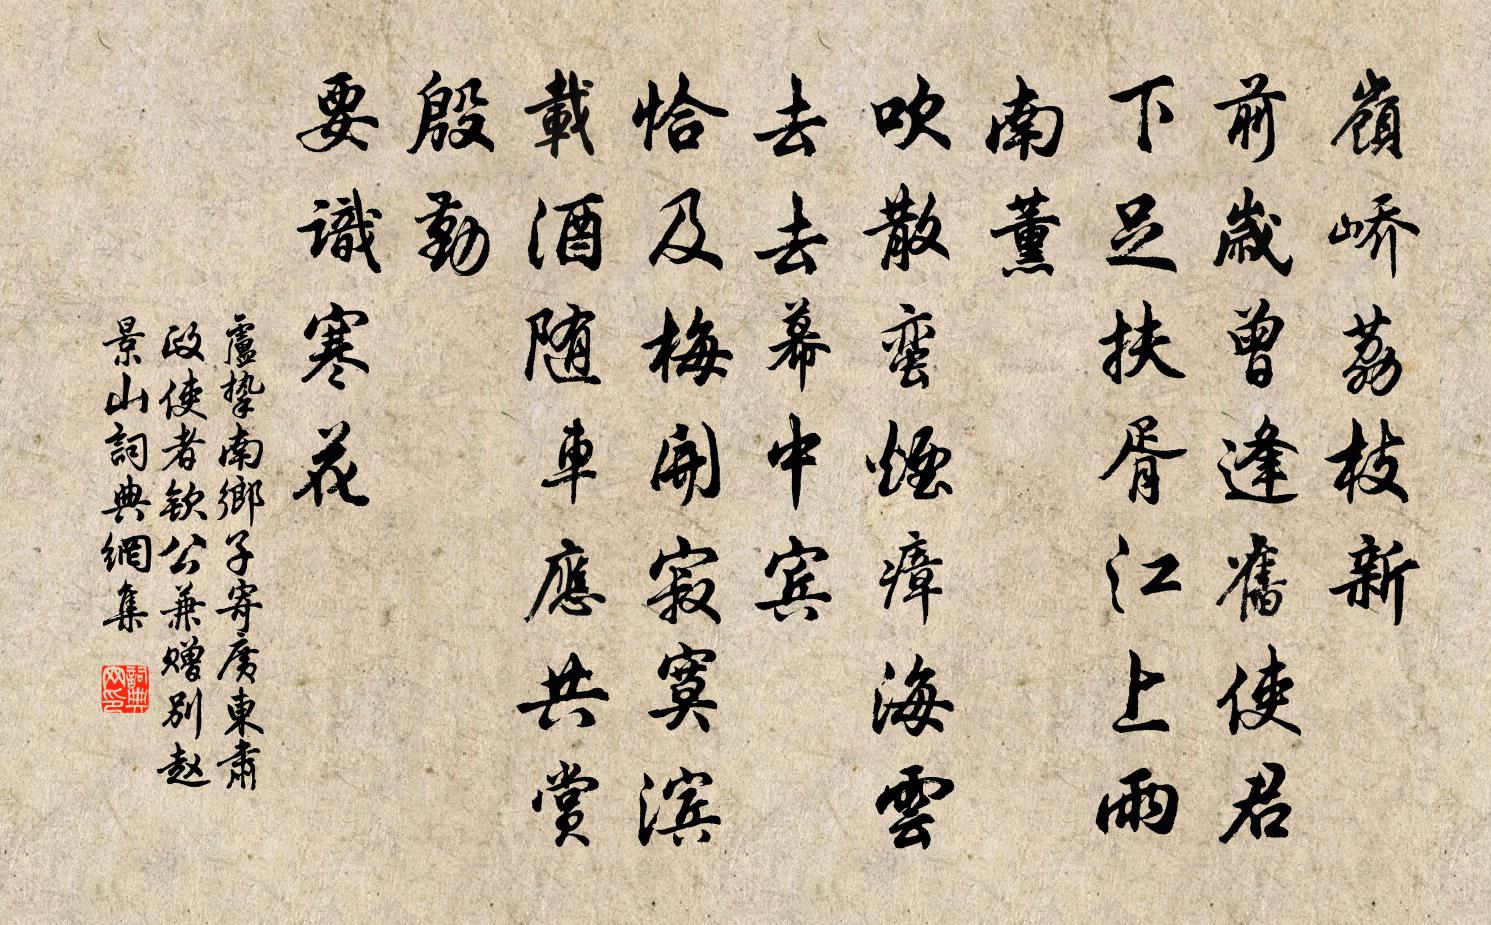 嶺嶠荔枝新
前歲曾逢舊使君
下足扶胥江上雨
南薰
吹散蛮煙瘴海雲
去去幕中宾
恰及梅開寂寞滨
載酒随車應共賞
殷勤
要識寒花
盧挚南鄉子寄廣東肅
政使者欽公兼赠别赵
景山詞典網集
詞典网印